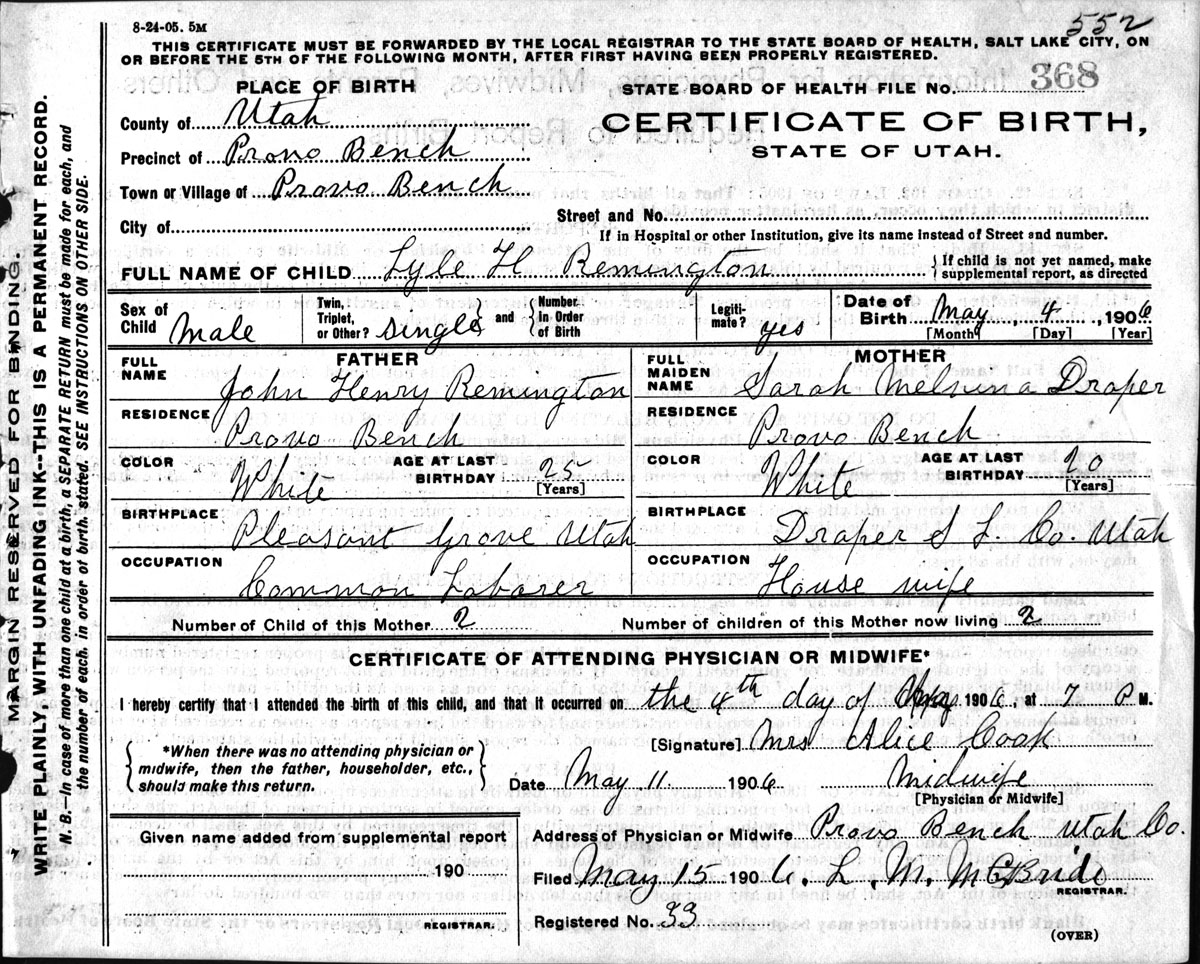 8-24-05. 5M
552
THIS CERTIFICATE MUST BE FORWARDED BY THE LOCAL REGISTRAR TO THE STATE BOARD OF HEALTH, SALT LAKE CITY, ON
OR BEFORE THE 5TH OF THE FOLLOWING MONTH, AFTER FIRST HAVING BEEN PROPERLY REGISTERED.
PLACE OF BIRTH
STATE BOARD OF HEALTH FILE No. 368
County of Utah
CERTIFICATE OF BIRTH,
STATE OF UTAH.
Precinct of Provo Bench
Town or Village of Provo Bench
Street and No.
City of
If in Hospital or other Institution, give its name instead of Street and number.
FULL NAME OF CHILD Lyle H Remington
If child is not yet named, make
supplemental report, as directed
Sex of Child Male
Twin, Triplet, or Other? single and Number in Order of Birth
Legiti-mate? yes
Date of Birth May 4, 1906
[Month] [Day] [Year]
FATHER
MOTHER
FULL NAME John Henry Remington
FULL MAIDEN NAME Sarah Melvina Draper
RESIDENCE Provo Bench
RESIDENCE Provo Bench
COLOR White AGE AT LAST BIRTHDAY 25 [Years]
COLOR White AGE AT LAST BIRTHDAY 20 [Years]
BIRTHPLACE Pleasant Grove Utah
BIRTHPLACE Draper S L. Co. Utah
OCCUPATION Common Laborer
OCCUPATION House wife
Number of Child of this Mother 2
Number of children of this Mother now living 2
CERTIFICATE OF ATTENDING PHYSICIAN OR MIDWIFE*
I hereby certify that I attended the birth of this child, and that it occurred on the 4th day of May 1906, at 7 P M.
*When there was no attending physician or
midwife, then the father, householder, etc.,
should make this return.
[Signature] Mrs Alice Cook
Date May 11 1906 Midwife
[Physician or Midwife]
Given name added from supplemental report
190
REGISTRAR.
Address of Physician or Midwife Provo Bench Utah Co.
Filed May 15 1906. L. M. McBride
REGISTRAR.
Registered No. 33
(OVER)
MARGIN RESERVED FOR BINDING.
WRITE PLAINLY WITH UNFADING INK--THIS IS A PERMANENT RECORD.
N. B.—In case of more than one child at a birth, a SEPARATE RETURN must be made for each, and
the number of each, in order of birth, stated. SEE INSTRUCTIONS ON OTHER SIDE.